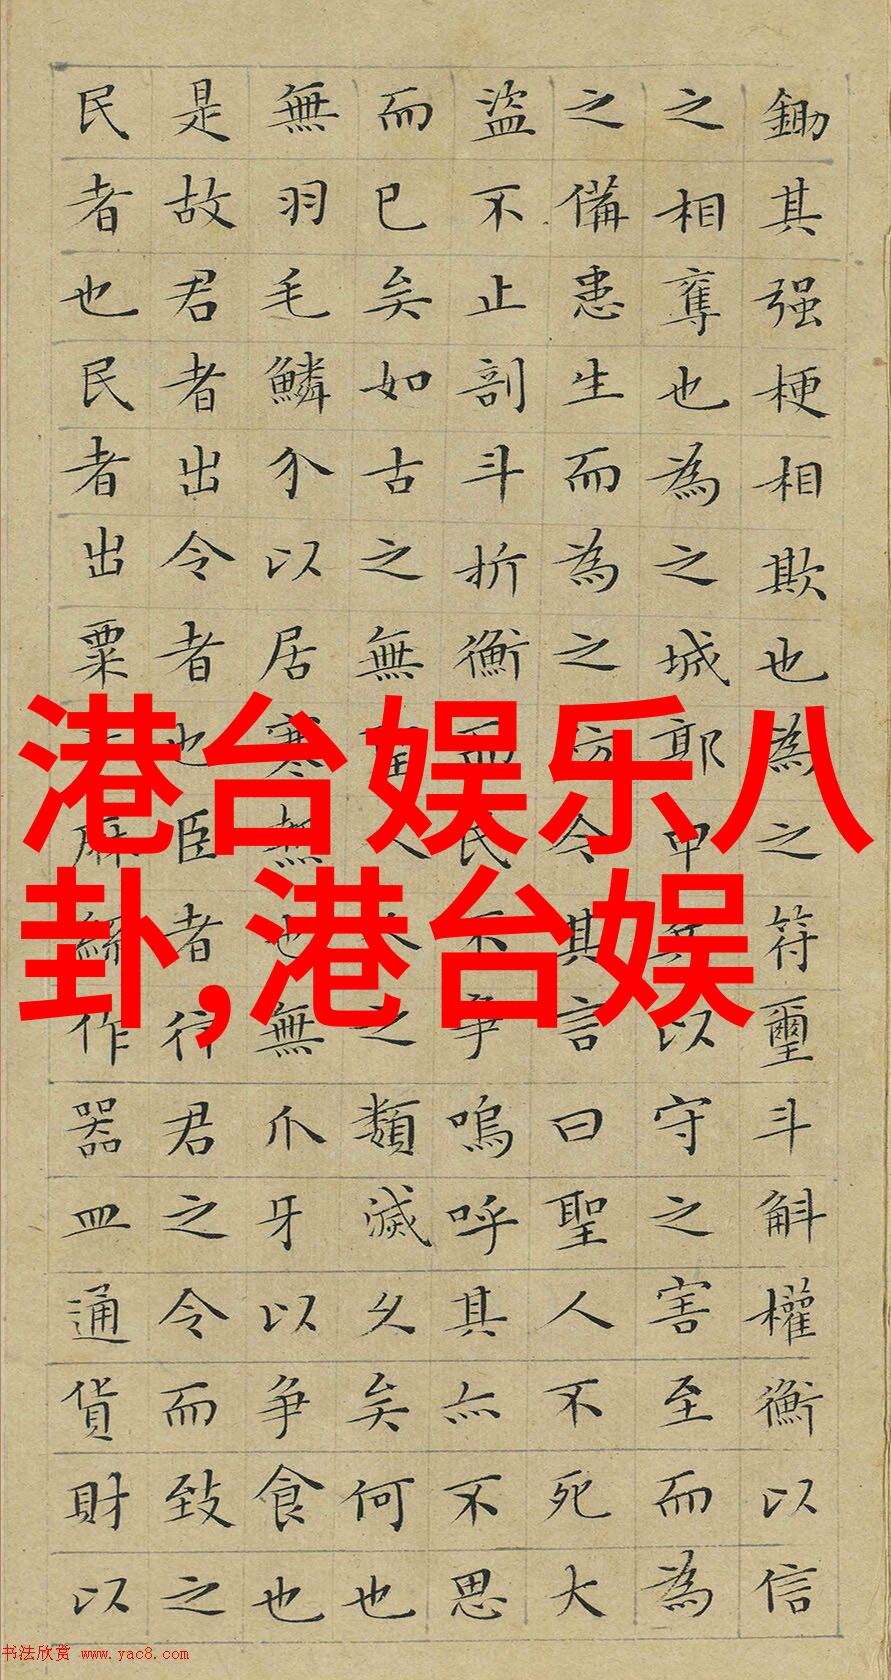 鋤其强梗相欺也為之符璽斗斛權衡以信
之相奪也為之城郭甲兵以守之害至而為
之備患生而為之防令其言曰聖人不死大
盜不止剖斗折衡而民不爭嗚呼其亦不思
而已矣如古之無聖人人之類滅久矣何也
無羽毛鱗介以居寒熱也無爪牙以爭食也
是故君者出令者也臣者行君之令而致之
民者也民者出粟麻絲作器皿通貨財以
港台娱乐八
卦,港台娱
书法欣赏 www.yac8.com